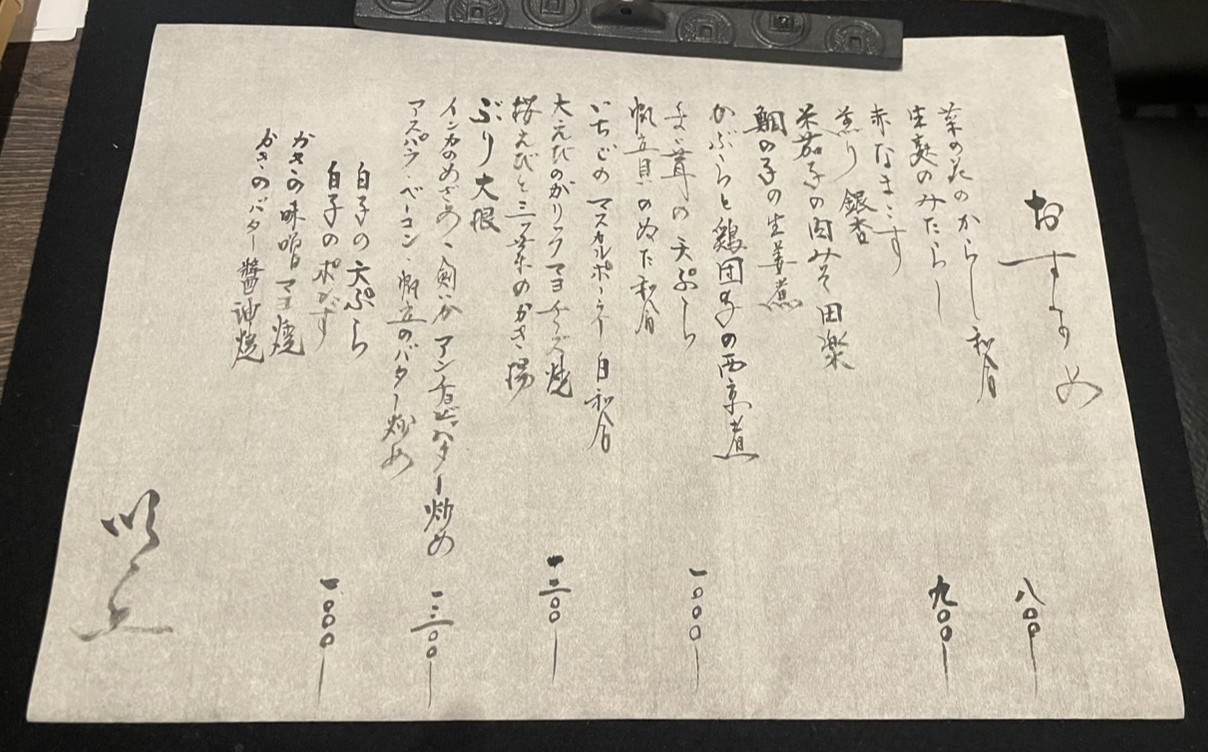 おすすめ
菜の花のからし和合
生麩のみたらし
赤なまこす
煎り銀杏
米茄子の肉みそ田楽
鯛の子の生姜煮
かぶらと鶏団子の西京煮
茸の天ぷら
帆立貝のぬた和合
いちごのマスカルポーネ白和合
大えびのガリックマヨチーズ焼
桜えびと三つ葉のかき揚
ぶり大根
インカのめざめ、剣いかアンチョビバター炒め
アスパラ・ベーコン・帆立のバター炒め
白子の天ぷら
白子のポン酢
かきの味噌マヨ焼
かきのバター醬油焼
八〇〇
九〇〇
一〇〇〇
一二〇〇
一三〇〇
一〇〇〇
以上